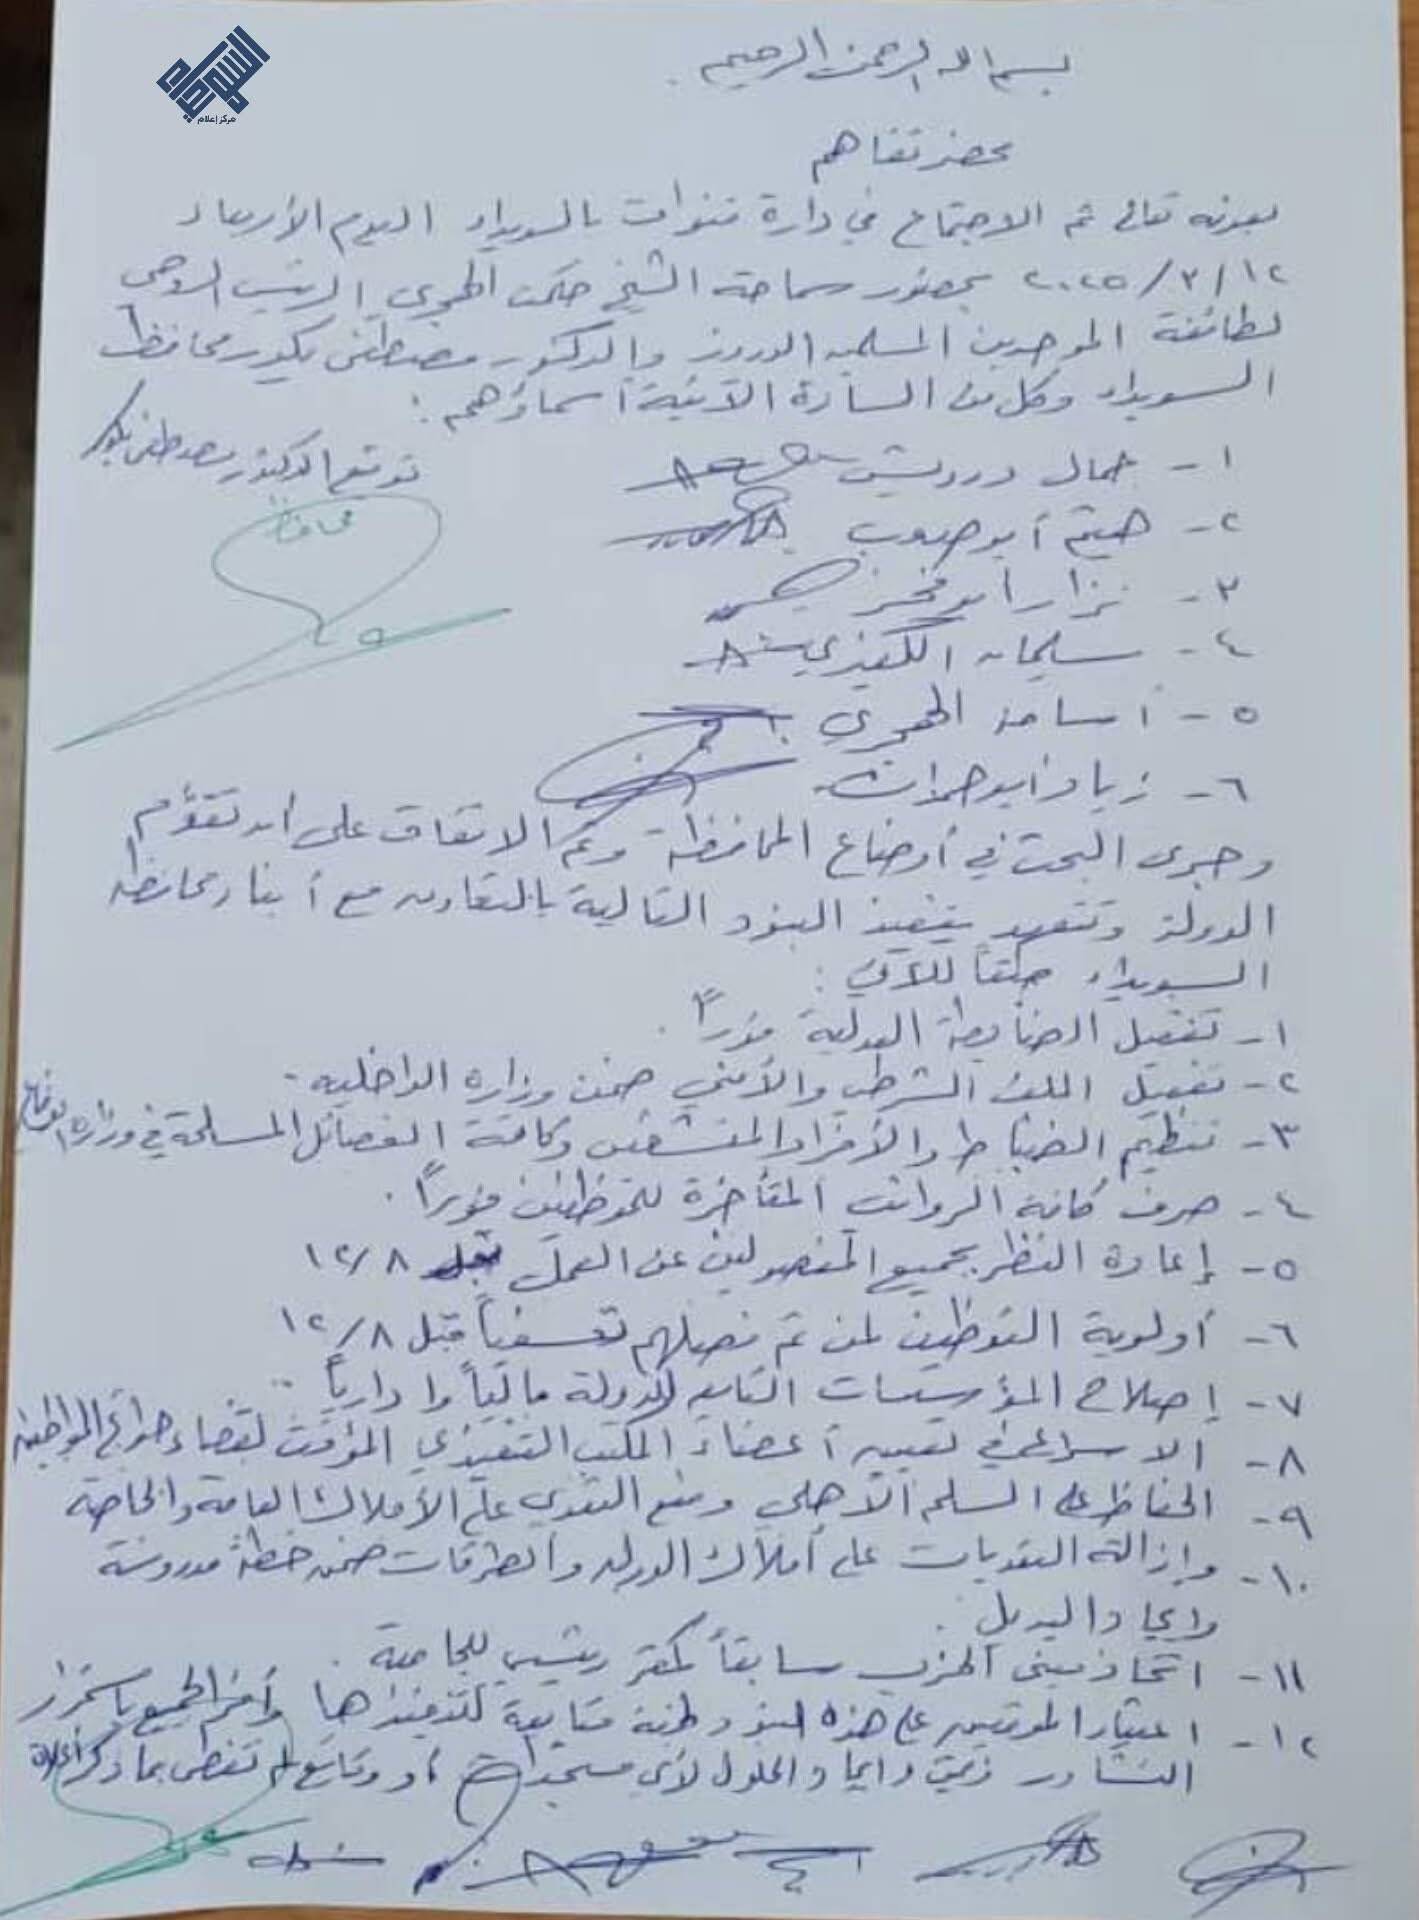 السويداء
مركز إعلام
بسم الله الرحمن الرحيم
محضر تفاهم
بعونه تعالى تم الاجتماع في دارة قنوات بالسويداء اليوم الأربعاء
١٢/٣/٢٠٢٥ بحضور سماحة الشيخ حكمت الهجري الرئيس الروحي
لطائفة الموحدين المسلمين الدروز والدكتور مصطفى بكور محافظ
السويداء وكل من السادة الآتية أسماؤهم :
توقيع الدكتور مصطفى بكور
محافظ
١- جمال درويش
٢- هيثم أبو صعب
٣- نزار أبو فخر
٤- سليمان الكفيري
٥- أسامة الهجري
٦- زياد أبو حمدان
وجرى البحث في أوضاع المحافظة وتم الاتفاق على أن تقوم
الدولة وتتعهد بتنفيذ البنود التالية بالتعاون مع أبناء محافظة
السويداء للآتي :
١- تفعيل الضابطة العدلية فوراً .
٢- تفعيل الملف الشرطي والأمني ضمن وزارة الداخلية .
٣- تنظيم الضباط والأفراد المنشقين وكافة الفصائل المسلحة في وزارة الدفاع
٤- صرف كافة الرواتب المتأخرة للموظفين فوراً .
٥- إعادة النظر بجميع المفصولين عن العمل قبل ١٢/٨
٦- أولوية التوظيف لمن تم فصلهم تعسفياً قبل ١٢/٨
٧- إصلاح المؤسسات التابعة للدولة مالياً وادارياً .
٨- الاسراع في تعيين أعضاء المكتب التنفيذي المؤقت لقضاء حوائج المواطنين
٩- الحفاظ على السلم الأهلي ومنع التعدي على الأملاك العامة والخاصة
١٠- وإزالة التعديات على أملاك الدولة والطرقات ضمن خطة مدروسة
وايجاد البديل .
١١- اتخاذ مبنى الحزب سابقاً كمقر رئيسي للجامعة .
١٢- اعتبار الموقعين على هذه البنود لجنة متابعة لتنفيذها وأقر الجميع باستمرار
التشاور وايجاد الحلول لأي مستجدات بما ذكر أعلاه